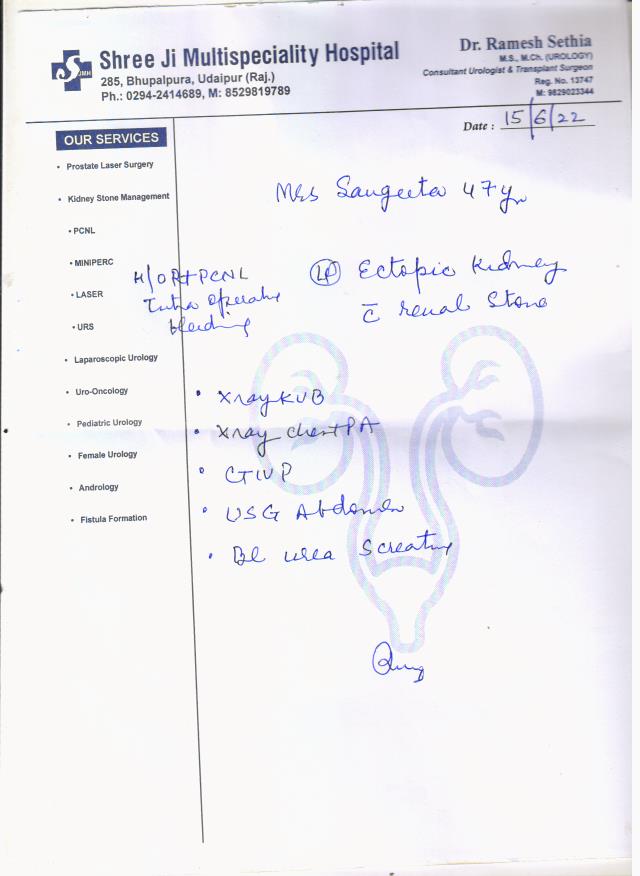 Shree Ji Multispeciality Hospital
285, Bhupalpura, Udaipur (Raj.)
Ph.: 0294-2414689, M: 8529819789
SJMH
Dr. Ramesh Sethia
M.S., M.Ch. (UROLOGY)
Consultant Urologist & Transplant Surgeon
Reg. No. 13747
M: 9829023344
Date : 15/6/22
OUR SERVICES
• Prostate Laser Surgery
• Kidney Stone Management
• PCNL
• MINIPERC
• LASER
• URS
• Laparoscopic Urology
• Uro-Oncology
• Pediatric Urology
• Female Urology
• Andrology
• Fistula Formation
Mrs Sangeeta 47yr
H/O PCNL
Intra operative
bleeding
Ectopic Kidney
c̄ renal Stone
• Xray KUB
• Xray chest PA
• CT IVP
• USG Abdomen
• Bl urea S creatinine